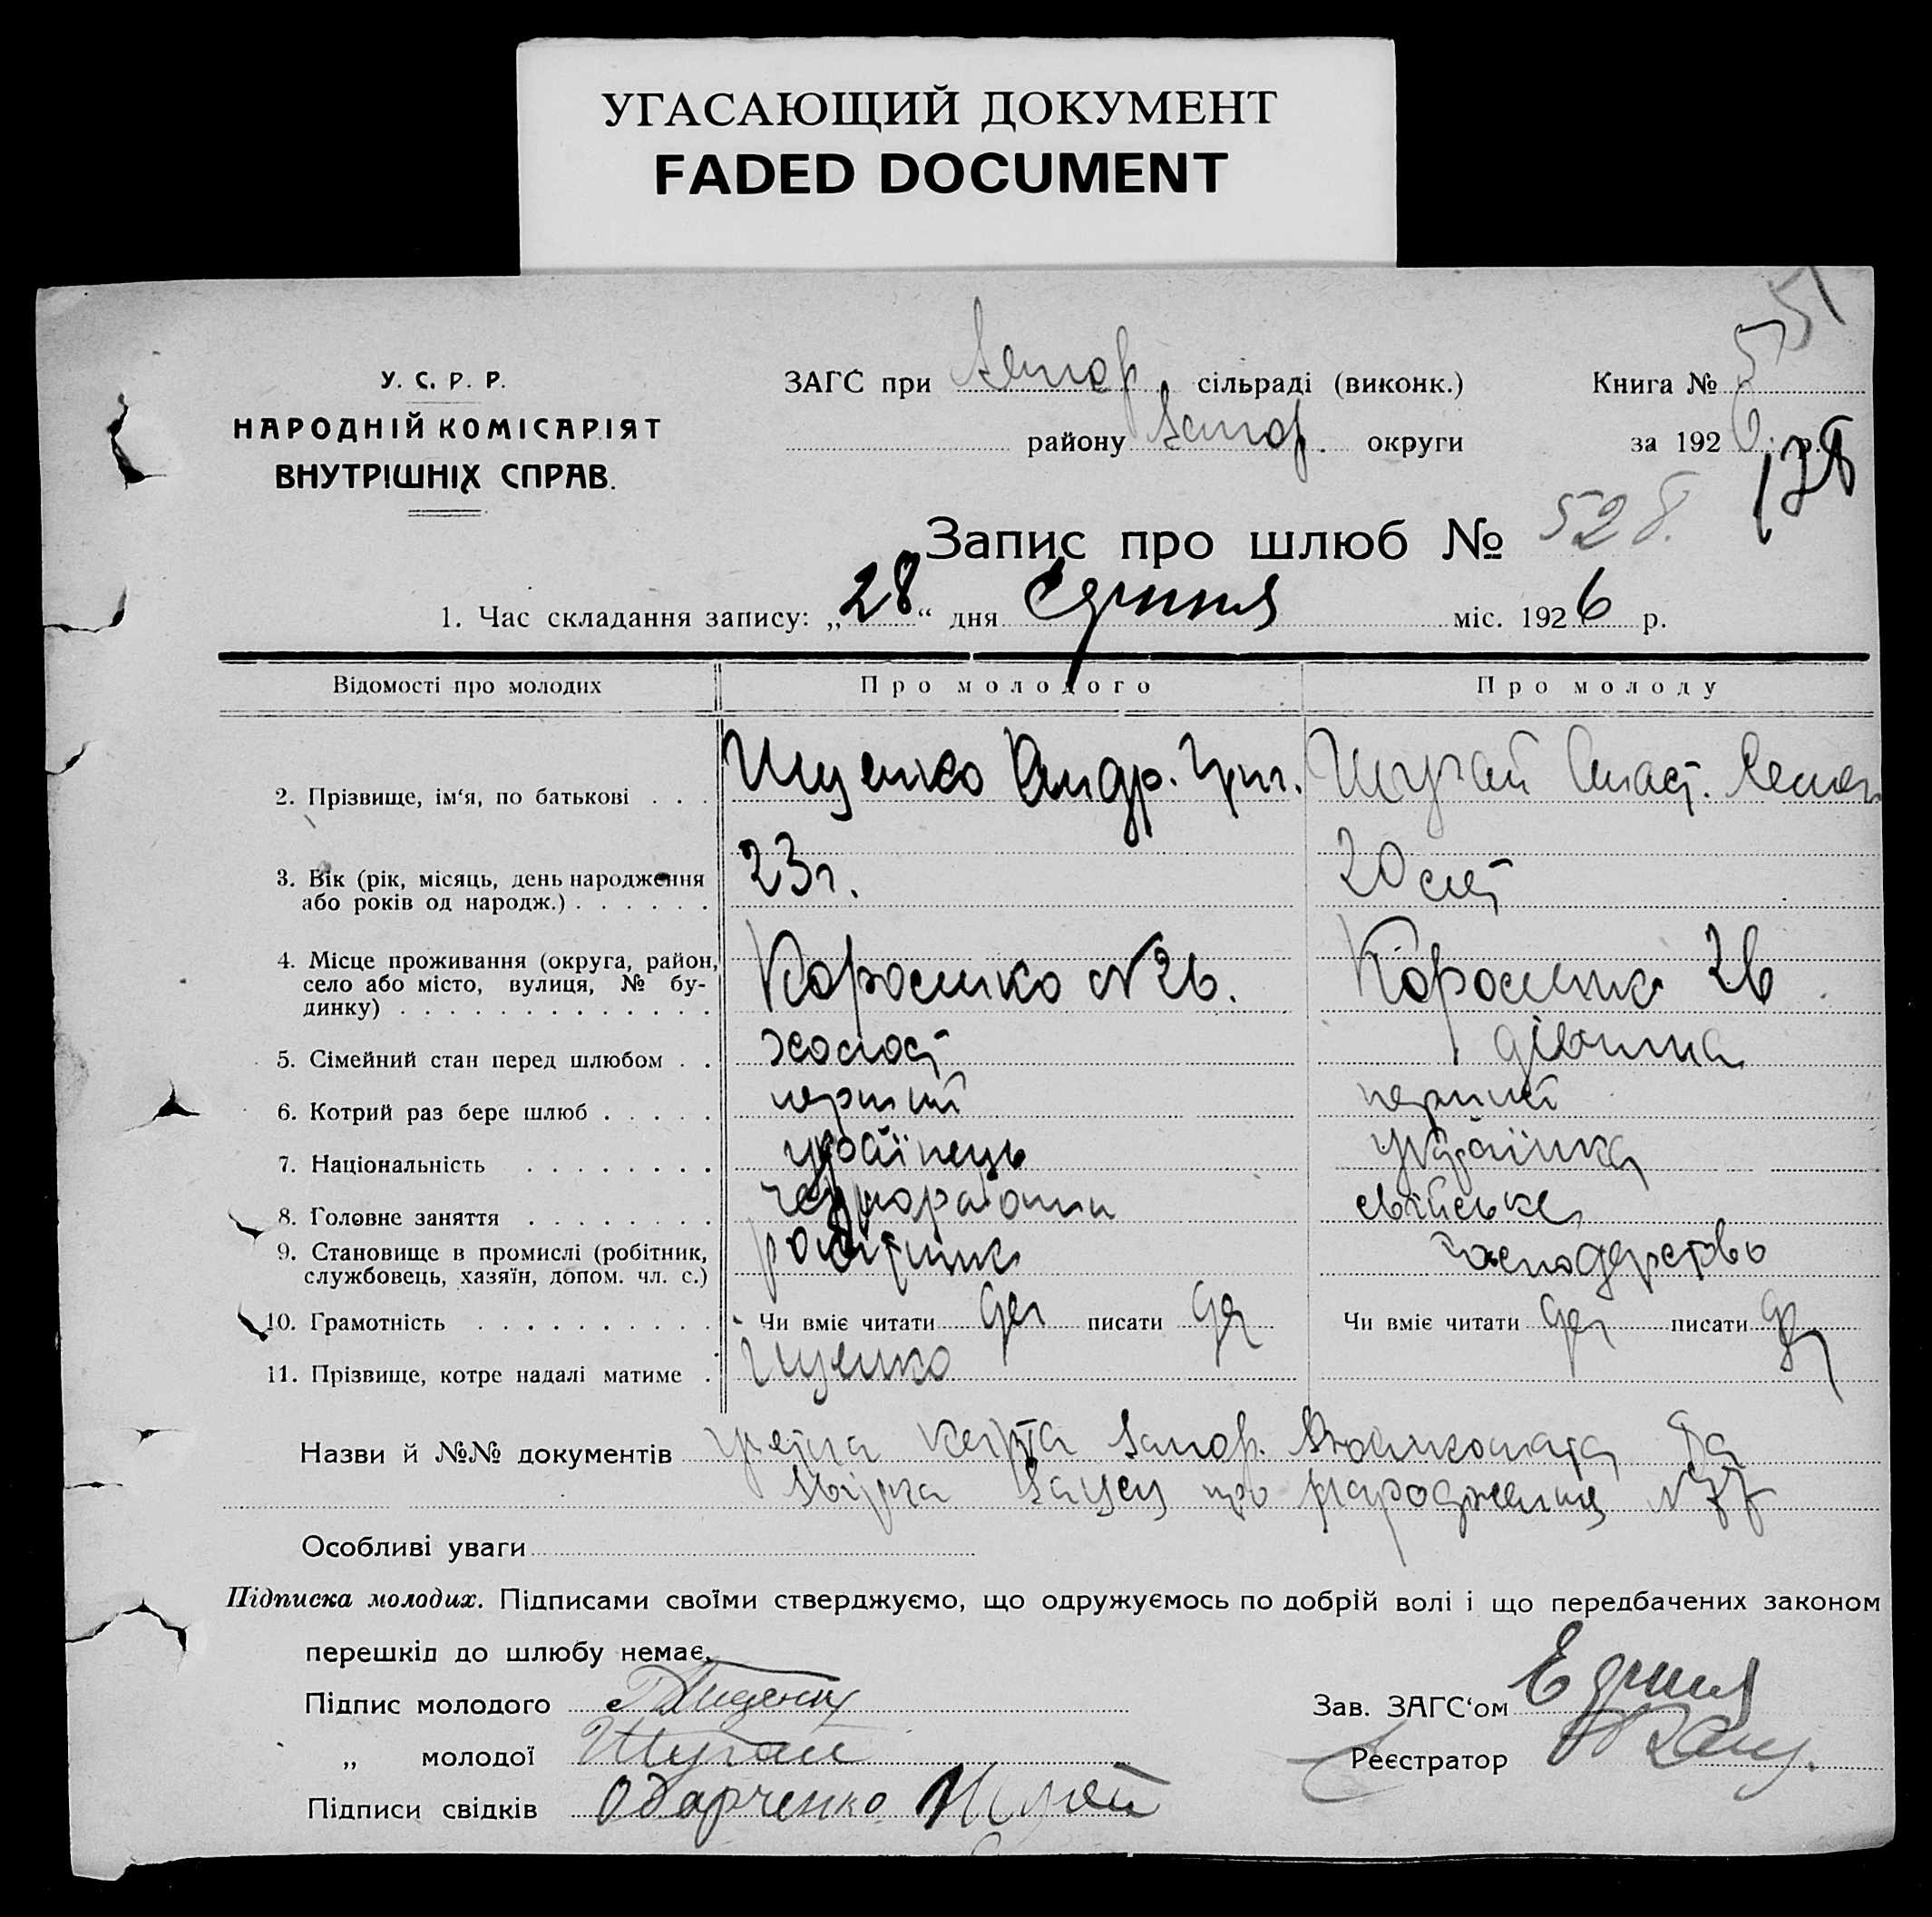 УГАСАЮЩИЙ ДОКУМЕНТ
FADED DOCUMENT
У. С. Р. Р.
НАРОДНІЙ КОМІСАРІЯТ
ВНУТРІШНІХ СПРАВ.
ЗАГС при Запор. сільраді (виконк.)
району Запор. округи
Книга № 5
за 1926 р.
51
128
Запис про шлюб № 528.
1. Час складання запису: „28“ дня Серпня міс. 1926 р.
Відомості про молодих
Про молодого
Про молоду
2. Прізвище, ім‘я, по батькові . . .
Ищенко Андр. Григ.
Шугай Анаст.
3. Вік (рік, місяць, день народження
або років од народж.) . . . . . .
23 г.
20 лет
4. Місце проживання (округа, район,
село або місто, вулиця, № бу-
динку) . . . . . . . . . . . . .
Короленко № 26.
Короленко 26
5. Сімейний стан перед шлюбом . .
холост
дівчина
6. Котрий раз бере шлюб . . . . .
перший
перший
7. Національність . . . . . . . .
українець
українка
8. Головне заняття . . . . . . . .
чернороботи
сільське
9. Становище в промислі (робітник,
службовець, хазяїн, допом. чл. с.)
робітник
господарство
10. Грамотність . . . . . . . . . .
Чи вміє читати да писати да
Чи вміє читати да писати да
11. Прізвище, котре надалі матиме .
Ищенко
Назви й №№ документів карта Запор. та
про народження № 77
Особливі уваги
Підписка молодих. Підписами своїми стверджуємо, що одружуємось по добрій волі і що передбачених законом
перешкід до шлюбу немає.
Підпис молодого Ищенко
„ молодої Шугай
Підписи свідків Одарченко
Зав. ЗАГС‘ом
Реєстратор